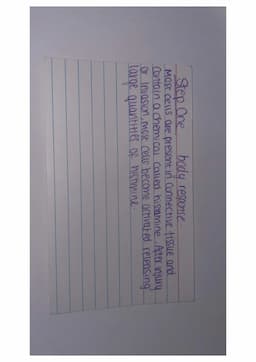 Step One body response
Mast cells are present in connective tissue and
contain a chemical called histamine. After injury
or invasion, mast cells become activated releasing
large quantities of histamine.